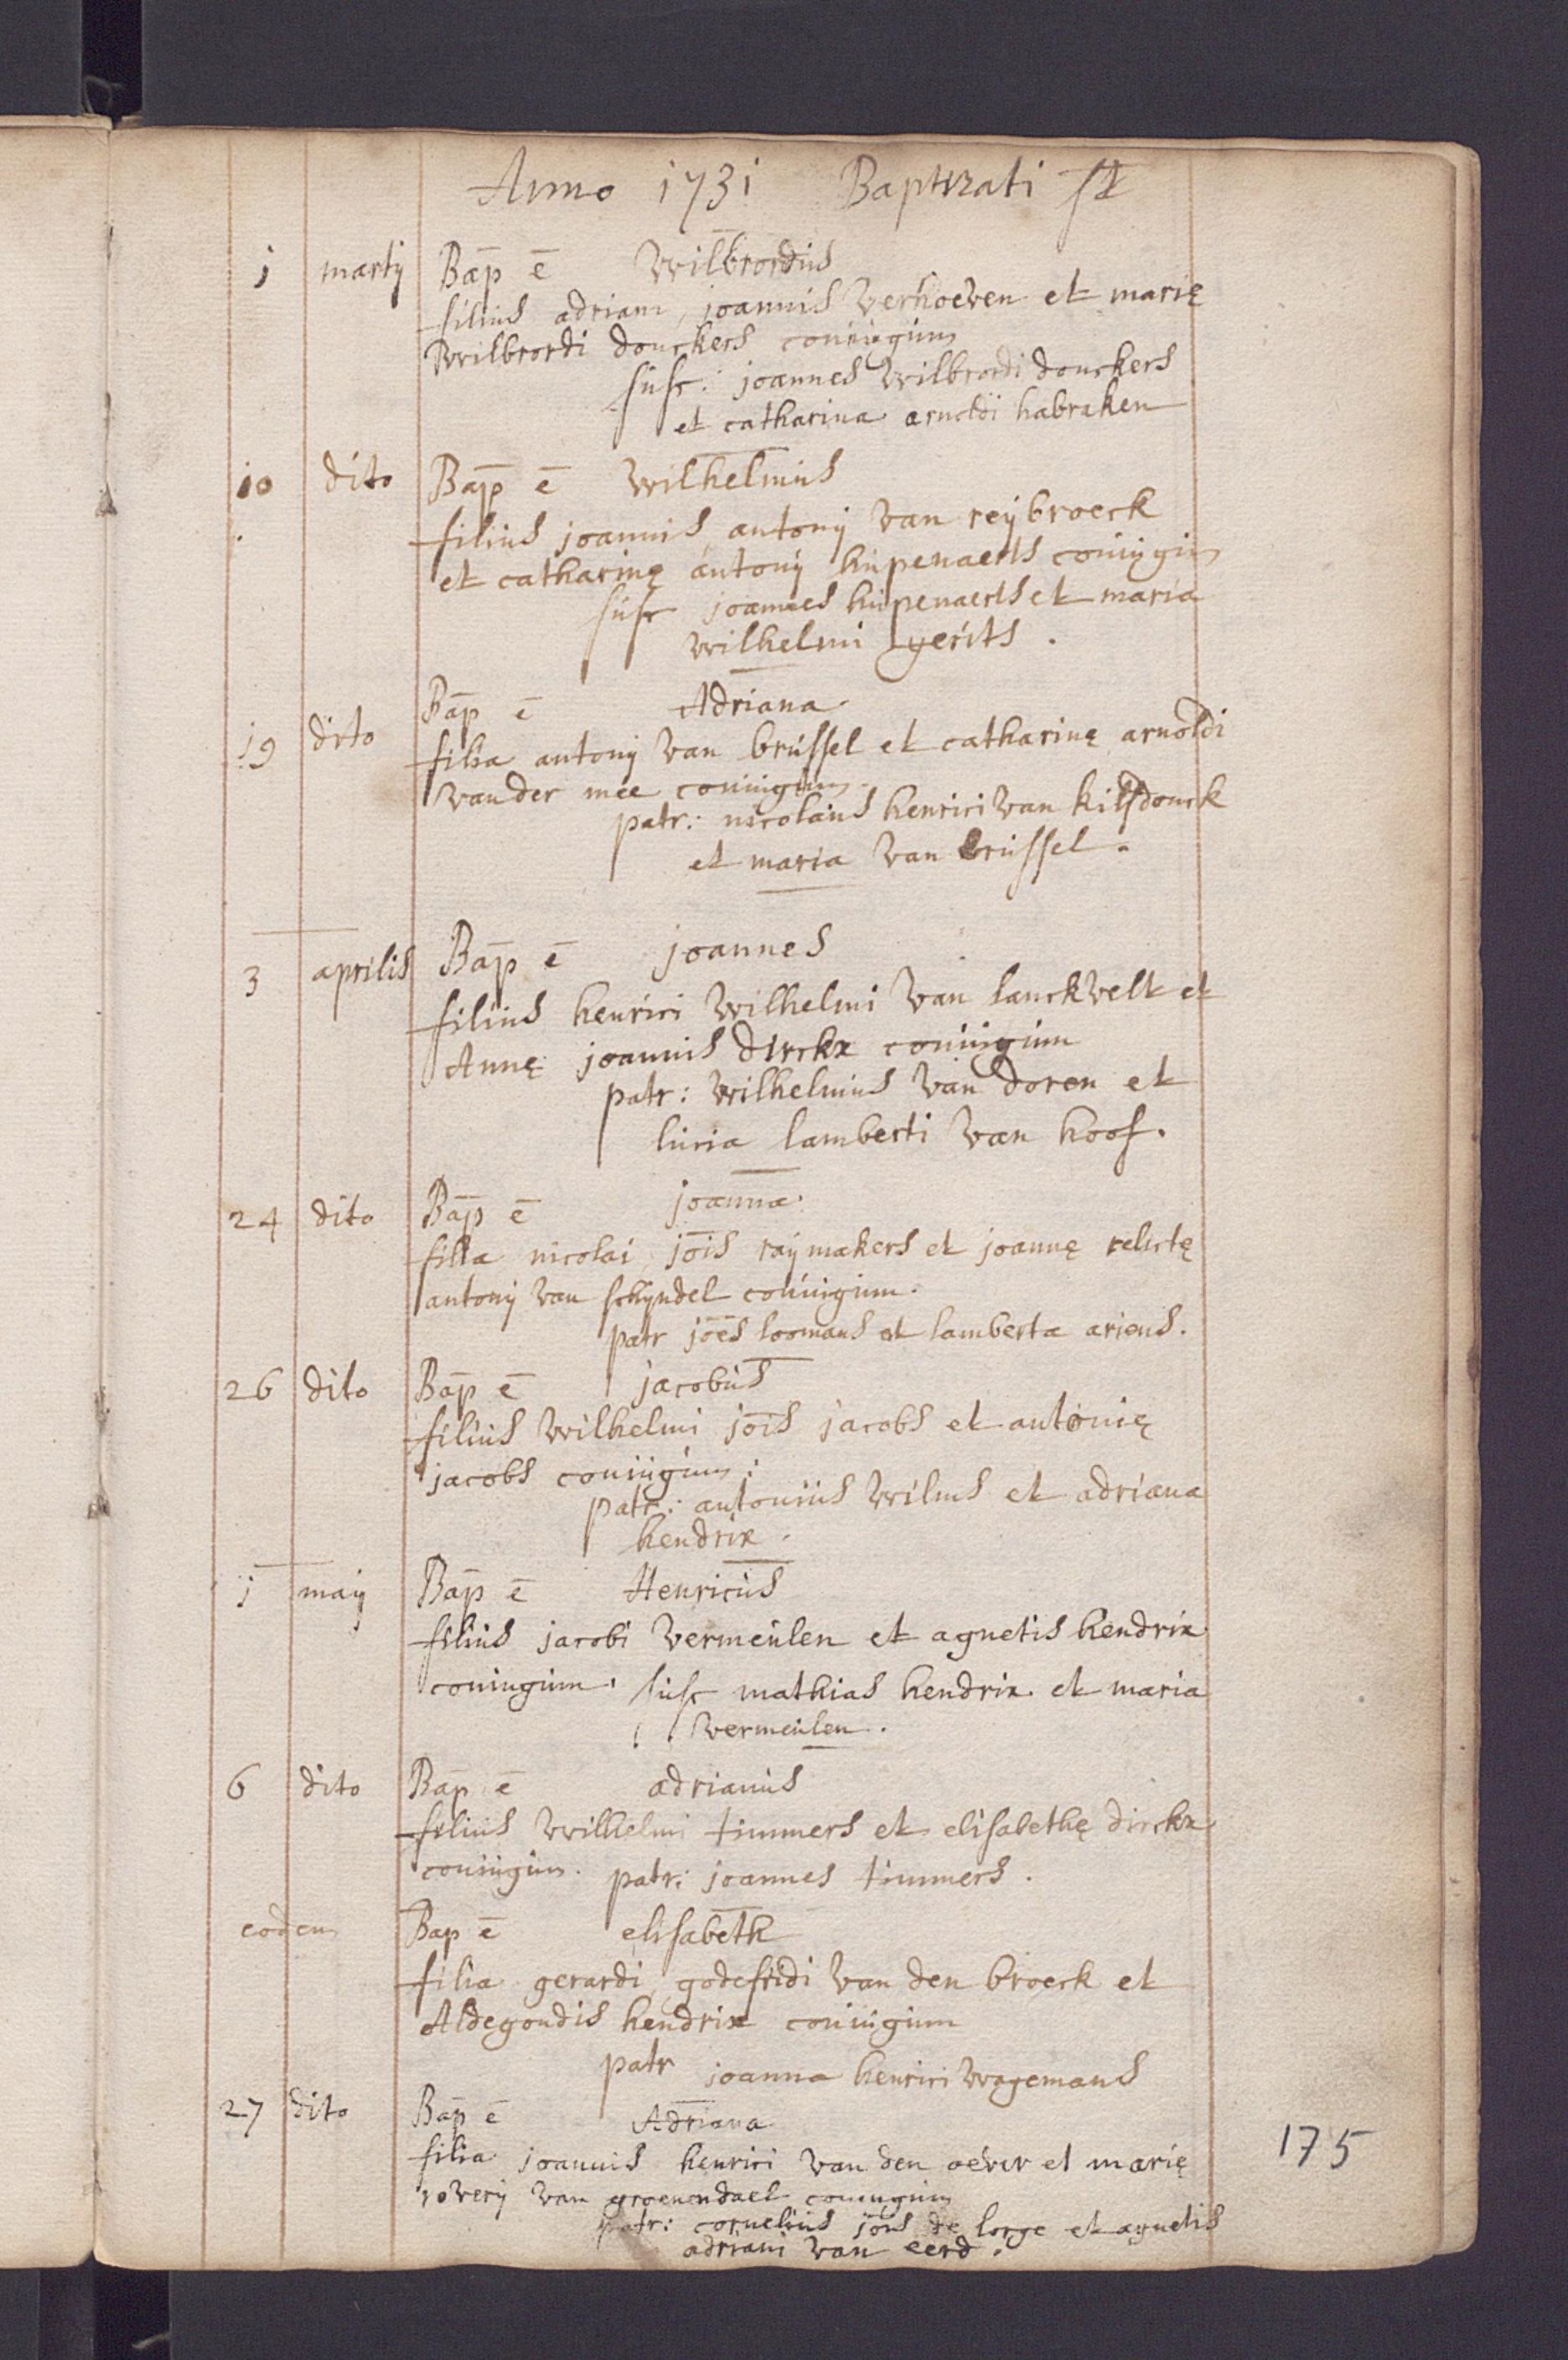 Anno 1731 Baptizati st
1 martij Bap e Wilbrordus
filius adriani, joannis Verhoeven et marię
Wilbrordi donckers coniugum
susc: joannes Wilbrordi donckers
et catharina arnoldi habraken
10 dito Bap e wilhelmus
filius joannis, antonij van reijbroeck
et catharinę antonij kupenaerts coniugum
susc joannes kupenaerts et maria
wilhelmi gerits.
19 dito Bap e Adriana
filia antonij van brussel et catharinę arnoldi
vander mee coniugum.
patr: nicolaus henrici van kilsdonck
et maria van brussel.
3 aprilis Bap e joannes
filius henrici Wilhelmi van lanckvelt et
Annę joannis dirckx coniugum
patr: wilhelmus van doren et
lucia lamberti van hoof.
24 dito Bap e joanna
filia nicolai, jois raijmakers et joannę relictę
antonij van schyndel coniugum.
patr joes loomans et lamberta ariens.
26 dito Bap e jacobus
filius wilhelmi jois jacobs et antonię
jacobs coniugum:
patr: antonius wilms et adriana
hendrix.
1 maij Bap e Henricus
filius jacobi vermeulen et agnetis hendrix
coniugum. susc mathias hendrix et maria
vermeulen.
6 dito Bap e adrianus
filius wilhelmi timmers et elisabethę dirckx
coniugum. patr: joannes timmers.
eodem Bap e elisabeth
filia gerardi, godefridi van den broeck et
Aldegondis hendrix coniugum
patr joanna henrici wagemans
27 dito Bap e Adriana
filia joannis henrici van den oever et marię
roverij van groenendael coniugum
patr: cornelius jois de lorge et agnetis
adriani van eerd.
175